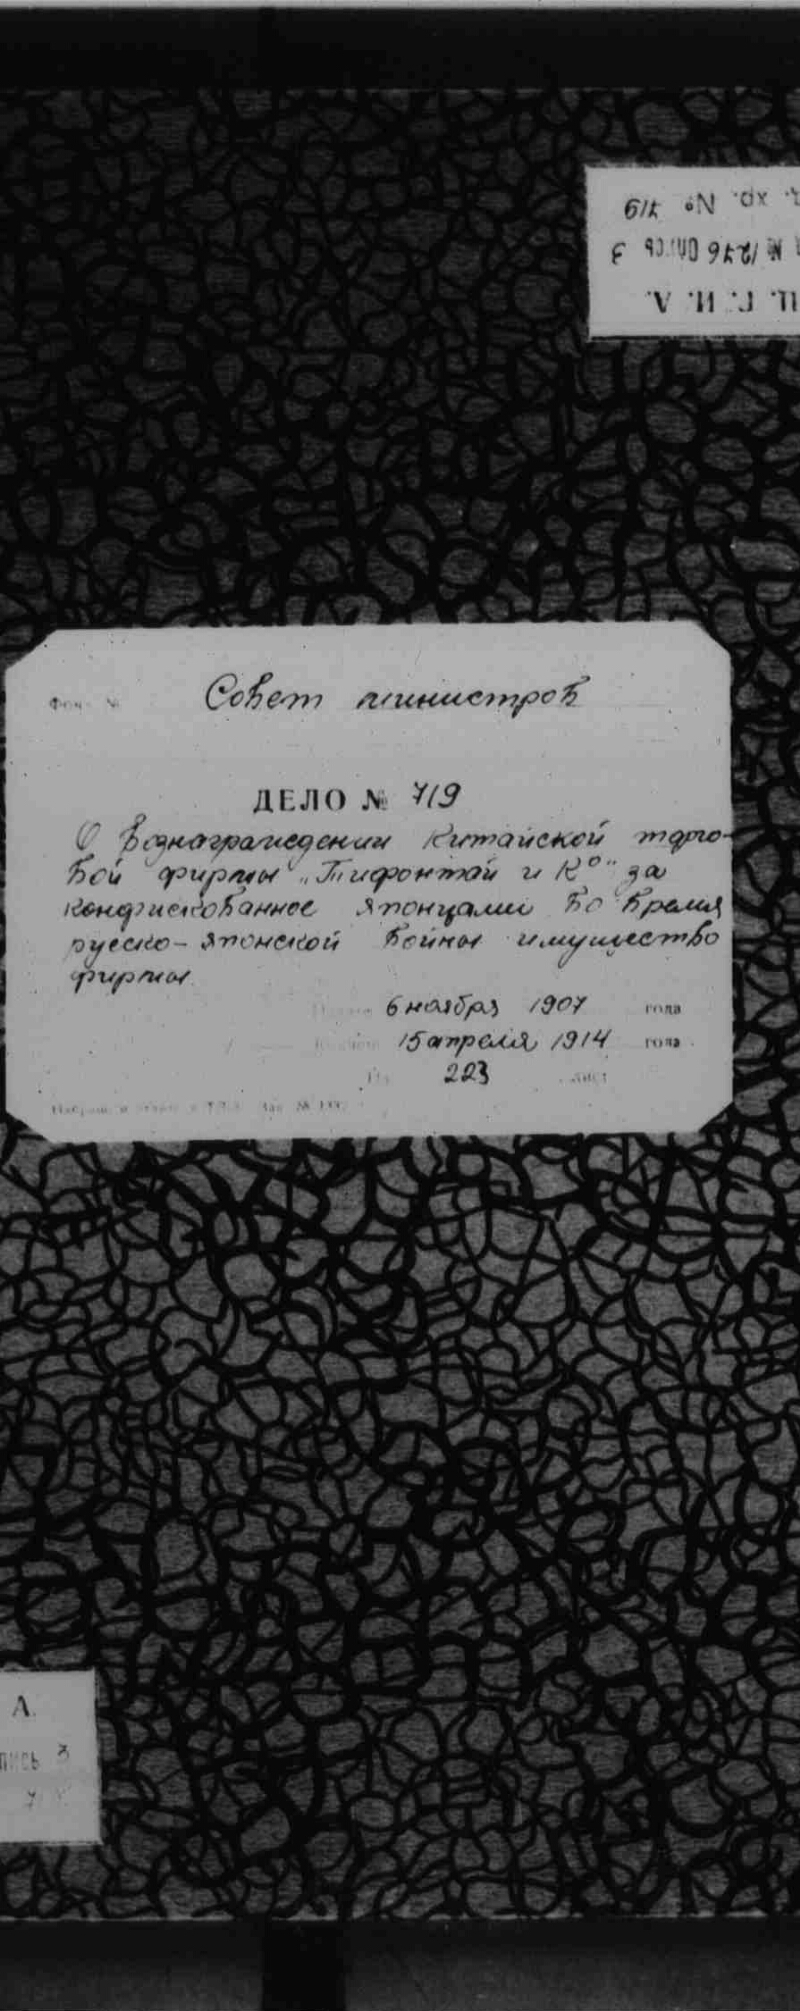 ц. хр. № 719
№ 1276 Опись 3
Ц. Г. И. А.
Фонд №
Совет министров
ДЕЛО № 719
О вознаграждении китайской торго-
вой фирмы „Тифонтай и К°" за
конфискованное японцами во время
русско-японской войны имущество
фирмы
6 ноября 1907 года
15 апреля 1914 года
На 223 лист
А.
пись 3
7